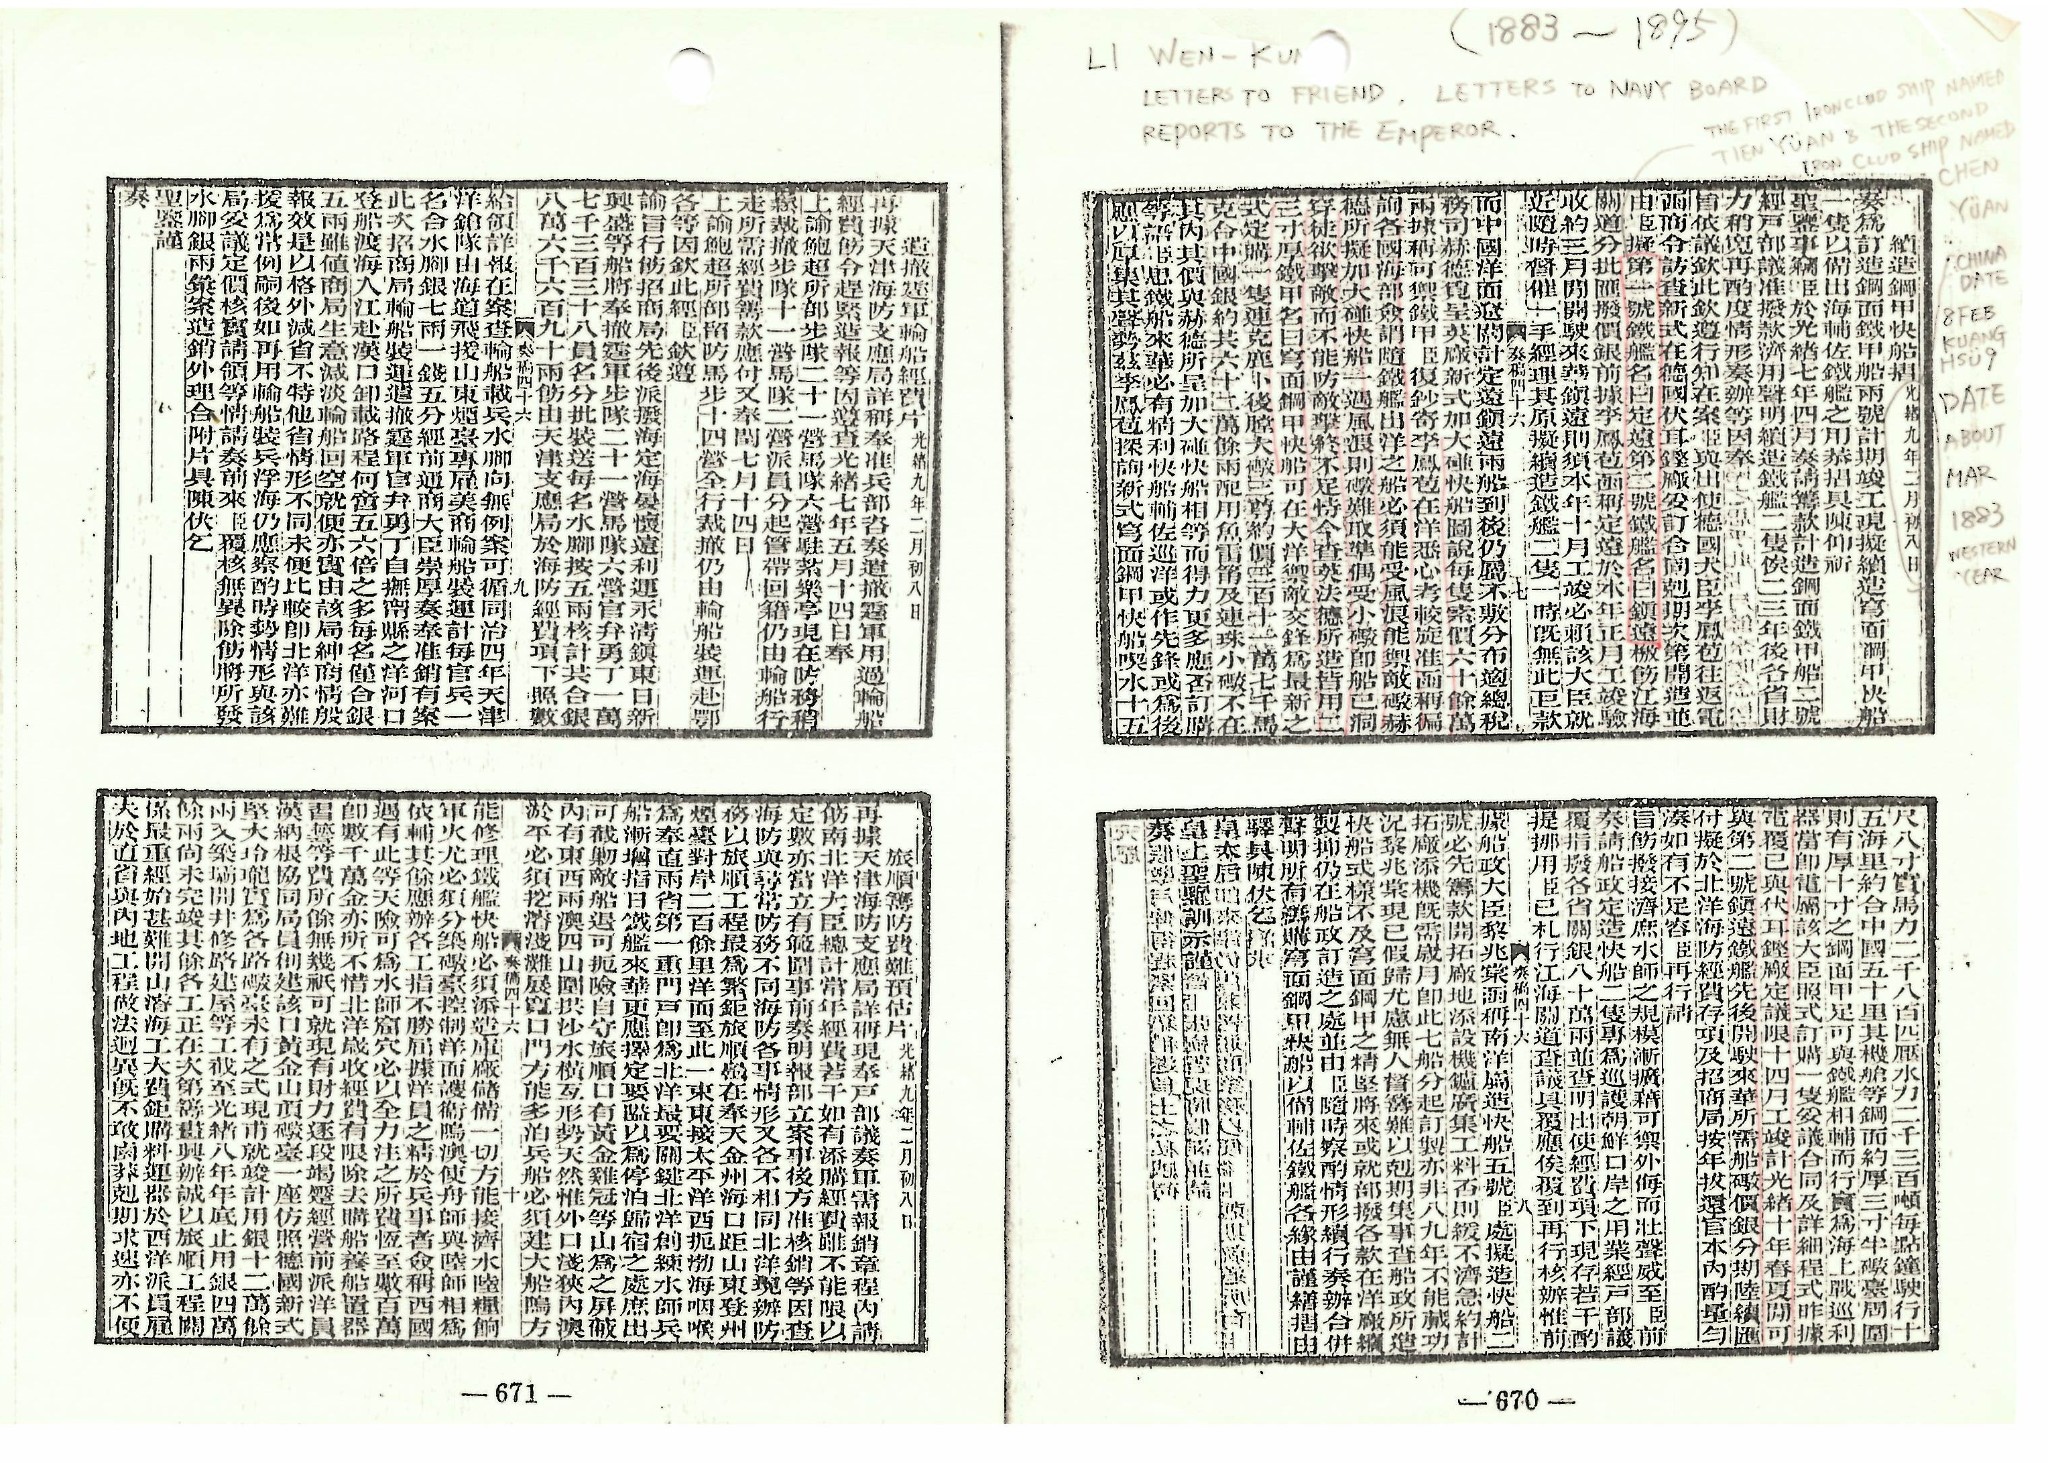 (1883 — 1895)
LI WEN-KUN
LETTERS TO FRIEND. LETTERS TO NAVY BOARD
REPORTS TO THE EMPEROR.
THE FIRST IRONCLUD SHIP NAMED
TIEN YÜAN & THE SECOND
IRON CLUD SHIP NAMED
CHEN
YÜAN
CHINA
DATE
8 FEB
KUANG
HSÜ 9
DATE
ABOUT
MAR
1883
WESTERN
YEAR
續造鋼甲快船摺 光緒九年二月初八日
奏爲訂造鋼面鐵甲船兩號計期竣工現擬續造穹面鋼甲快船
一隻以備出海輔佐鐵艦之用恭摺具陳仰祈
聖鑒事竊臣於光緒七年四月奏請籌款計造鋼面鐵甲船二號
經戶部議准撥款濟用聲明續造鐵艦二隻俟二三年後各省財
力稍寬再酌度情形奏辦等因奉
旨依議欽此欽遵行知在案臣與出使德國大臣李鳳苞往返電
商商令訪查新式在德國伏耳鏗廠妥訂合同剋期次第開造並
由臣擬第一號鐵艦名曰定遠第二號鐵艦名曰鎮遠檄飭江海
關道分批匯撥價銀前據李鳳苞函稱定遠於本年正月工竣驗
收約三月閒開駛來華鎮遠則須本年十月工竣必賴該大臣就
近隨時督催一手經理其原擬續造鐵艦二隻一時既無此巨款
奏稿四十六 七
而中國洋面遼闊計定遠鎮遠兩船到後仍屬不敷分布適總稅
務司赫德寬呈英廠新式加大碰快船圖說每隻索價六十餘萬
兩據稱可禦鐵甲臣復鈔寄李鳳苞在洋悉心考較旋准函稱徧
詢各國海部僉謂隨鐵艦出洋之船必須能受風浪能禦敵礮赫
德所擬加大碰快船一遇風浪則礮難取準偶受小礮卽船已洞
穿徒欲擊敵而不能防敵擊終不足恃今查英法德所造皆用二
三寸厚鐵甲名曰穹面鋼甲快船可在大洋禦敵交鋒爲最新之
式定購一隻連克鹿卜後膛大礮三尊約價三百十一萬七千馬
克合中國銀約共六十二萬餘兩配用魚雷筩及連珠小礮不在
其內其價與赫德所呈加大碰快船相等而得力更多應否訂購
等語臣思鐵船來華必有精利快船輔佐巡洋或作先鋒或爲後
應以厚集其聲勢茲李鳳苞探詢新式穹面鋼甲快船喫水十五
尺八寸實馬力二千八百匹壓水力二千三百噸每點鐘駛行十
五海里約合中國五十里其機艙等鋼面約厚三寸半礮臺周圍
則有厚十寸之鋼面甲足可與鐵艦相輔而行實爲海上戰巡利
器當卽電屬該大臣照式訂購一隻妥議合同及詳細程式昨據
電覆已與伏耳鏗廠定議限十四月工竣計光緒十年春夏閒可
與第二號鎮遠鐵艦先後開駛來華所需船礮價銀分期陸續匯
付擬於北洋海防經費存項及招商局按年拔還官本內酌量勻
湊如有不足容臣再行請
旨飭撥接濟庶水師之規模漸擴藉可禦外侮而壯聲威至臣前
奏請船政定造快船二隻專爲巡護朝鮮口岸之用業經戶部議
覆指撥各省關銀八十萬兩並查明出使經費項下現存若干酌
提挪用臣已札行江海關道查議具覆應俟覆到再行核辦惟前
奏稿四十六 八
據船政大臣黎兆棠函稱南洋屬造快船五號臣處擬造快船二
號必先籌款開拓廠地添設機鑪廣集工料否則緩不濟急約計
拓廠添機既需歲月卽此七船分起訂製亦非八九年不能藏功
况黎兆棠現已假歸尤慮無人督籌難以剋期集事查船政所造
快船式樣不及穹面鋼甲之精堅將來或就部撥各款在洋廠續
製抑仍在船政訂造之處並由臣隨時察酌情形續行奏辦合併
聲明所有籌購穹面鋼甲快船以備輔佐鐵艦各緣由謹繕摺由
驛具陳伏乞
皇太后
皇上聖鑒訓示謹
奏
— 670 —
遣撤霆軍輪船經費片 光緒九年二月初八日
再據天津海防支應局詳稱奉准兵部咨奏遣撤霆軍用過輪船
經費飭令趕緊造報等因遵查光緒七年五月十四日奉
上諭鮑超所部步隊二十一營馬隊六營駐紮樂亭現在防務稍
鬆裁撤步隊十一營馬隊二營派員分起管帶回籍仍由輪船行
走所需經費籌款應付又奉閏七月十四日
上諭鮑超所部留防馬步十四營全行裁撤仍由輪船裝運赴鄂
各等因欽此經臣欽遵
諭旨行飭招商局先後派撥海定海晏懷遠利運永清鎮東日新
興盛等船將奉撤霆軍步隊二十一營馬隊六營官弁勇丁一萬
七千三百三十八員名分批裝送每名水腳按五兩核計共合銀
八萬六千六百九十兩飭由天津支應局於海防經費項下照數
奏稿四十六 九
給領詳報在案查輪船載兵水腳向無例案可循同治四年天津
洋鎗隊由海道飛援山東煙臺專雇美商輪船裝運計每官兵一
名合水腳銀七兩一錢五分經前通商大臣崇厚奏奉准銷有案
此次招商局輪船裝運遣撤霆軍官弁勇丁自撫甯縣之洋河口
登船渡海入江赴漢口卸載路程何啻五六倍之多每名僅合銀
五兩雖値商局生意減淡輪船回空就便亦實由該局紳商情殷
報效是以格外減省不特他省情形不同未便比較卽北洋亦難
援爲常例嗣後如再用輪船裝兵浮海仍應察酌時勢情形與該
局妥議定價核實請領等情請奏前來臣覆核無異除飭將所發
水腳銀兩彙案造銷外理合附片具陳伏乞
聖鑒謹
奏
旅順籌防費難預估片 光緒九年二月初八日
再據天津海防支應局詳稱現奉戶部議奏軍需報銷章程內請
飭南北洋大臣總計常年經費若干如有添購經費雖不能限以
定數亦當立有範圍事前奏明報部立案事後方准核銷等因查
海防與尋常防務不同海防各事情形又各不相同北洋現辦防
務以旅順工程最爲繁鉅旅順嶴在奉天金州海口距山東登州
煙臺對岸二百餘里洋面至此一束東接太平洋西扼渤海咽喉
爲奉直兩省第一重門戶卽爲北洋最要關鍵北洋創練水師兵
船漸增指日鐵艦來華更應擇定要隘以爲停泊歸宿之處庶出
可截勦敵船退可扼險自守旅順口有黃金雞冠等山爲之屏蔽
內有東西兩澳四山圍拱沙水橫亙形勢天然惟外口淺狹內澳
淤平必須挖濬淺灘展寬口門方能多泊兵船必須建大船隖方
奏稿四十六 十
能修理鐵艦快船必須添造軍廠儲備一切方能接濟水陸糧餉
軍火尤必須分築礮臺控制洋面護衞隖澳使舟師與陸師相爲
依輔其餘應辦各工指不勝屈據洋員之精於兵事者僉稱西國
遇有此等天險可爲水師窟穴必以全力注之所費恆至數百萬
卽數千萬金亦所不惜北洋歲收經費有限除去購船養船置器
習藝等費所餘無幾祇可就現有財力逐段竭蹙經營前派洋員
漢納根協同局員創建該口黃金山頂礮臺一座仿照德國新式
堅大玲瓏實爲各路礮臺未有之式現甫就竣計用銀十二萬餘
兩又築壩開井修路建屋等工截至光緒八年年底止用銀四萬
餘兩尚未完竣其餘各工正在次第籌畫興辦誠以旅順工程關
係最重經始甚難開山濬海工大費鉅購料運器於西洋派員雇
夫於遠省與內地工程做法迥異既不敢鹵莽剋期求速亦不便
— 671 —